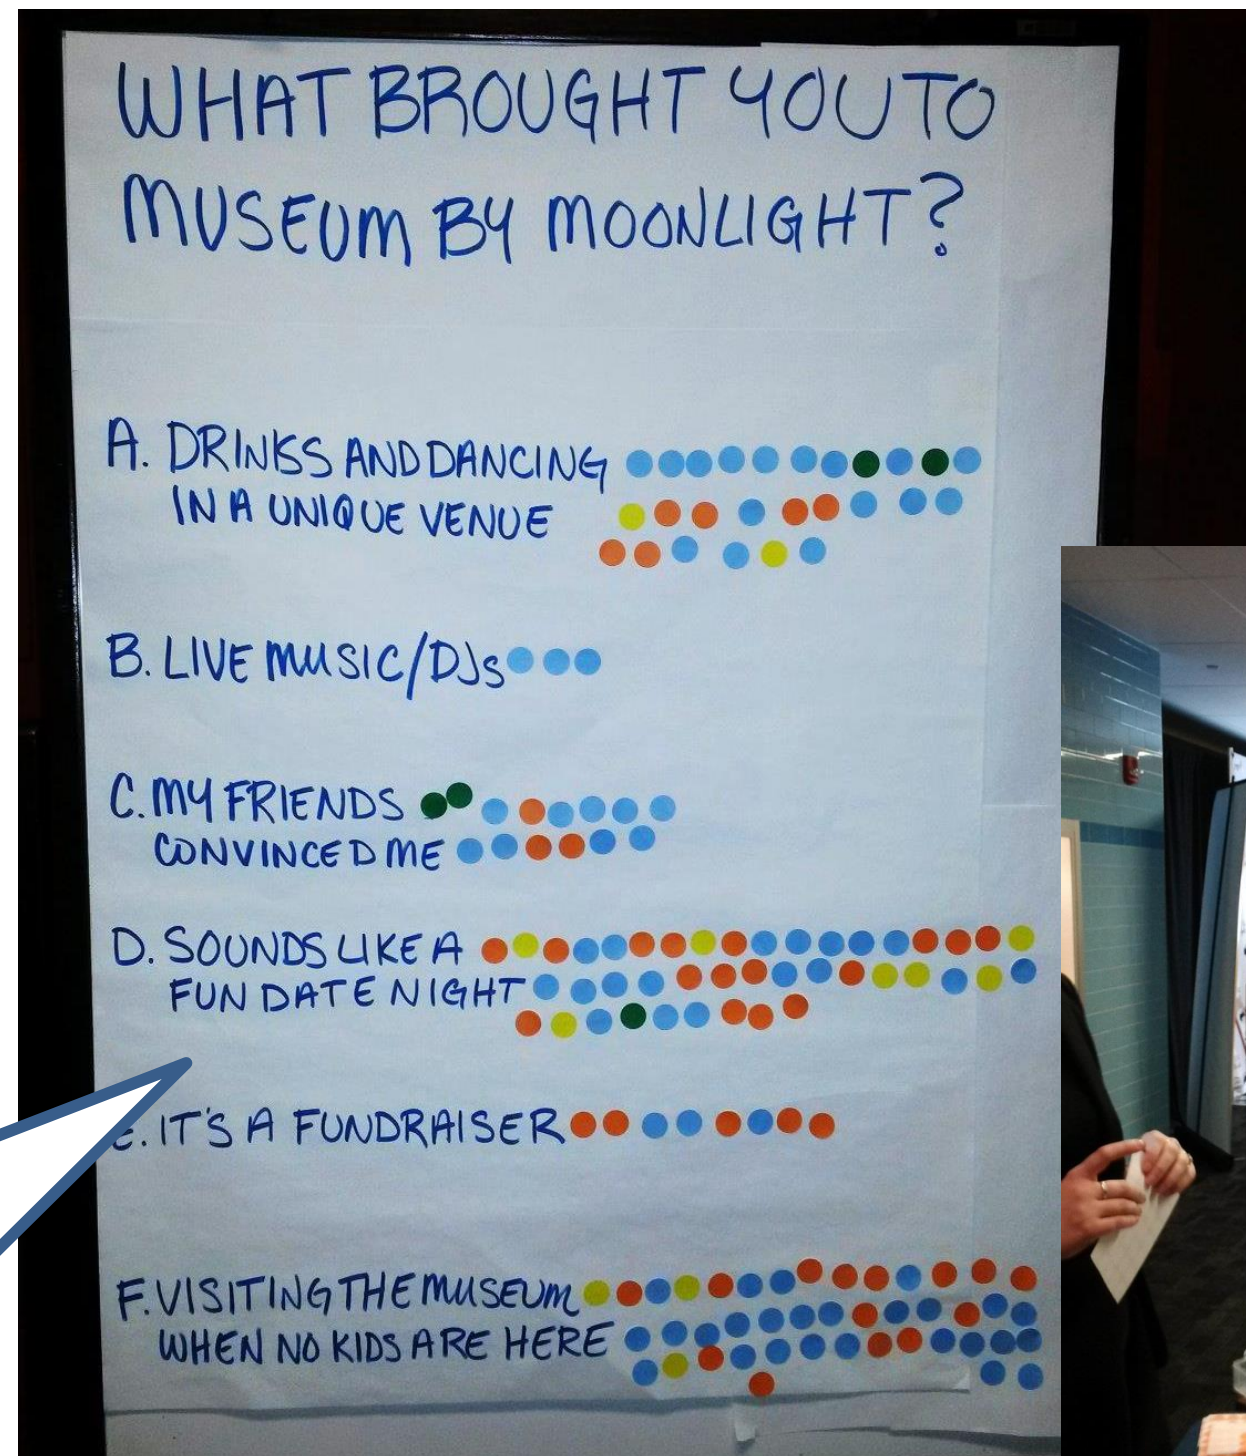 WHAT BROUGHT YOU TO
MUSEUM BY MOONLIGHT?
A. DRINKS AND DANCING
IN A UNIQUE VENUE
B. LIVE MUSIC/DJs
C. MY FRIENDS
CONVINCED ME
D. SOUNDS LIKE A
FUN DATE NIGHT
E. IT'S A FUNDRAISER
F. VISITING THE MUSEUM
WHEN NO KIDS ARE HERE